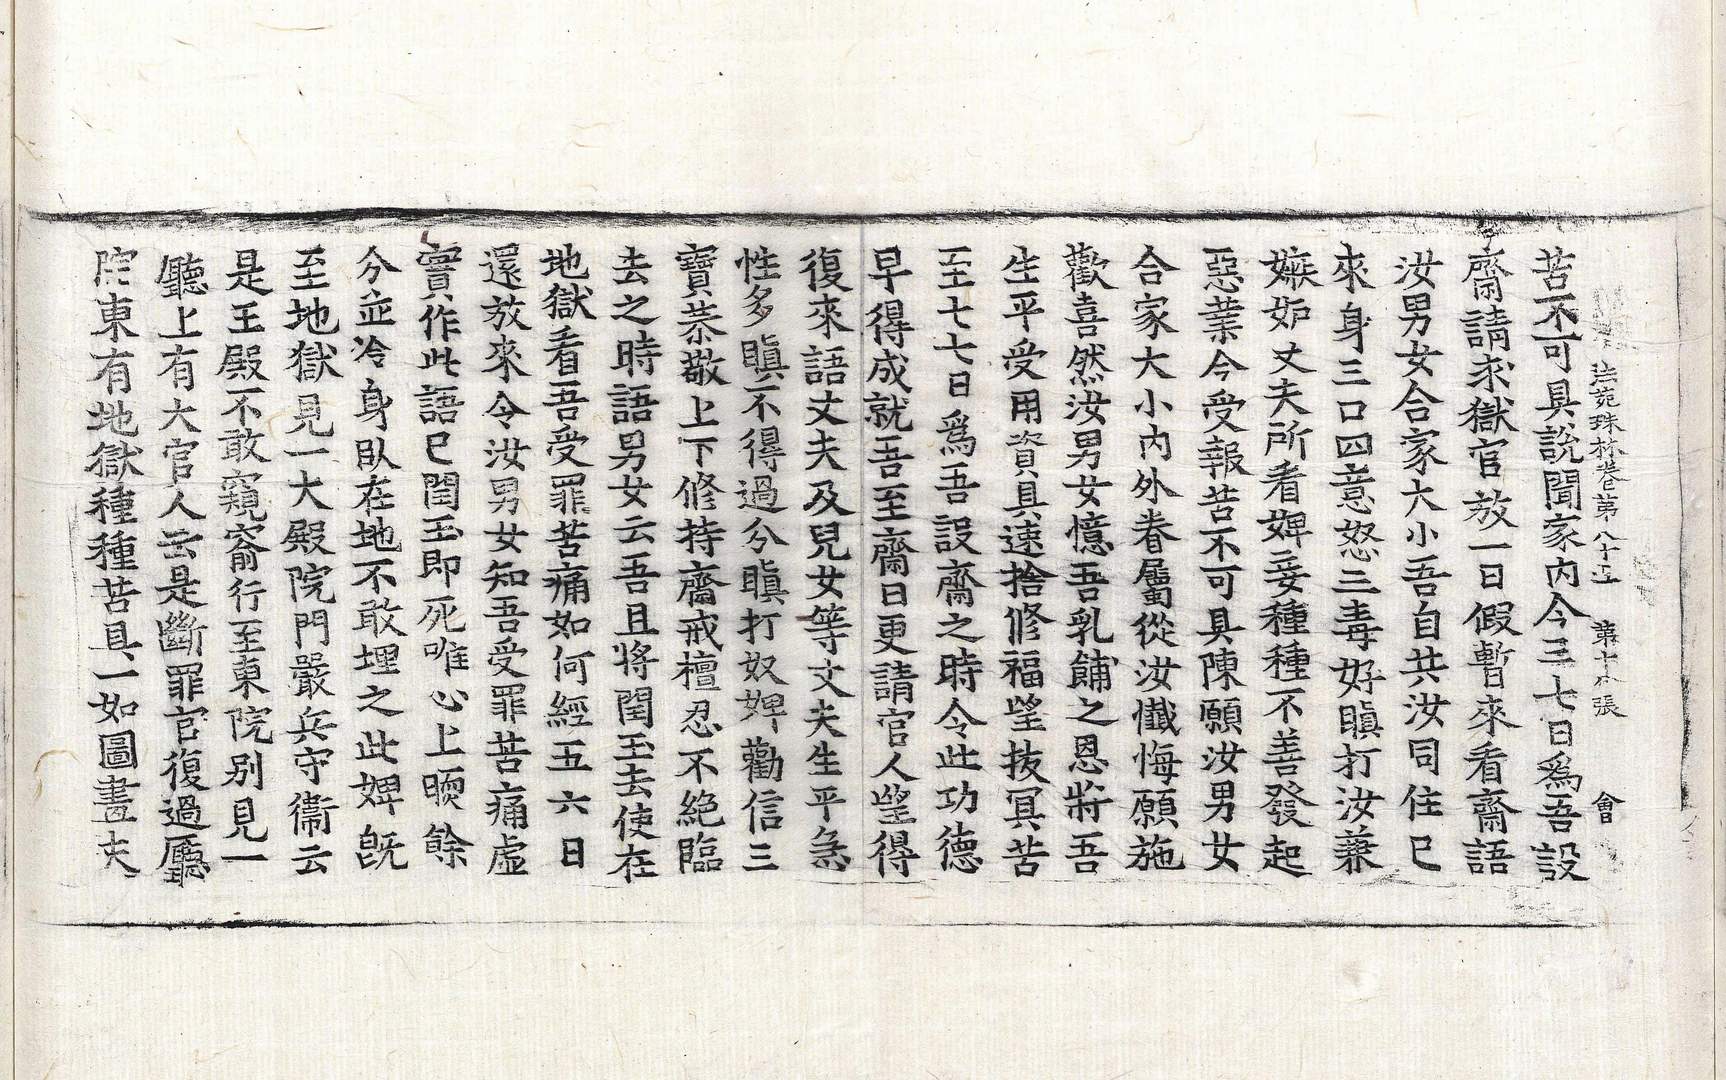 法苑珠林卷第八十五　第十六張　會
苦不可具說聞家內今三七日爲吾設
齋請求獄官放一日假暫來看齋語
汝男女合家大小吾自共汝同住已
來身三口四意怒三毒好瞋打汝兼
嫉妬丈夫所看婢妾種種不善發起
惡業今受報苦不可具陳願汝男女
合家大小內外眷屬從汝懺悔願施
歡喜然汝男女憶吾乳餔之恩將吾
生平受用資具速捨修福望拔冥苦
至七七日爲吾設齋之時令此功德
早得成就吾至齋日更請官人望得
復來語丈夫及兒女等丈夫生平急
性多瞋不得過分瞋打奴婢勸信三
寶恭敬上下修持齋戒檀忍不絕臨
去之時語男女云吾且將閻王去使在
地獄看吾受罪苦痛如何經五六日
還放來令汝男女知吾受罪苦痛虛
實作此語已閻王即死唯心上暖餘
分並冷身臥在地不敢埋之此婢旣
至地獄見一大殿院門嚴兵守衞云
是王殿不敢窺窬行至東院別見一
廳上有大官人云是斷罪官復過廳
院東有地獄種種苦具一如圖畫夫